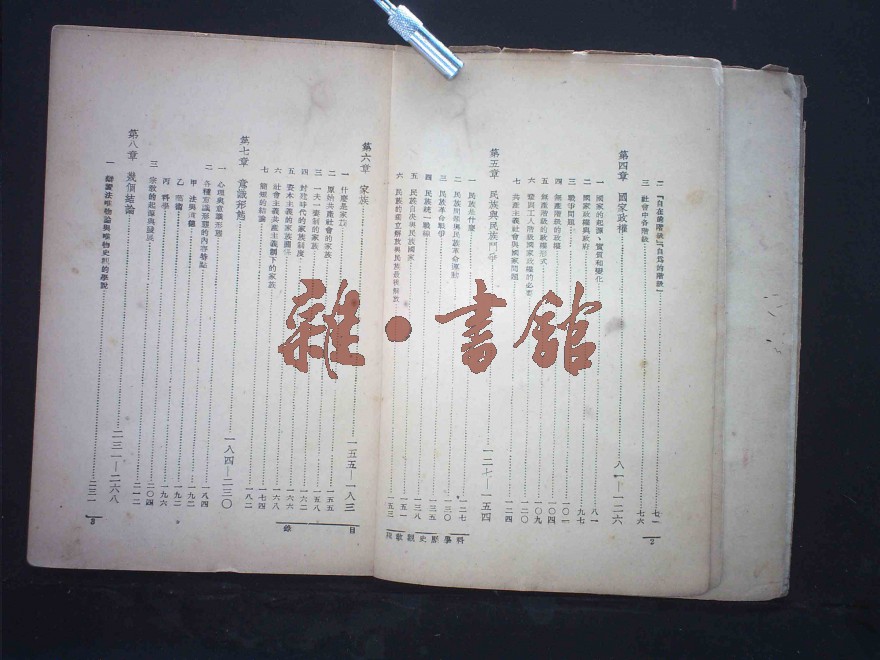 二 「自在的階級」「自為的階級」 七一
三 社會中各階級 七六
第四章 國家政權 八一—一二六
一 國家的起源、實質和變化 八一
二 國家政權與政府 九七
三 戰爭問題 一〇一
四 無產階級的政權 一〇四
五 無產階級的政權形式 一〇九
六 鞏固工人階級國家政權的必要 一二〇
七 共產主義社會與國家問題 一二四
第五章 民族與民族鬥爭 一二七—一五四
一 民族是什麼 一二七
二 民族問題與民族革命運動 一三〇
三 民族革命戰爭 一三五
四 民族統一戰線 一三八
五 民族自決與民族國家 一五一
六 民族的獨立解放與民族最後解放 一五三
科學歷史觀教程
2
第六章 家族 一五五—一八三
一 什麼是家族 一五五
二 原始共產社會的家族 一五五
三 一夫一妻制的家族 一五八
四 封建時代的家族制度 一六二
五 資本主義的家族關係 一六六
六 社會主義共產主義制下的家族 一六八
七 簡短的結論 一七四
第七章 意識形態 一八四—二三〇
一 心理與意識形態 一八二
二 各種意識形態的內容特點 一八四
甲 法與道德 一九二
乙 藝術 一九二
丙 科學 一九六
三 宗教的起源與發展 二〇四
第八章 幾個結論 二三一—二六八
一 辯證法唯物論與唯物史觀的學說 二三一
目錄
3
雜·書館